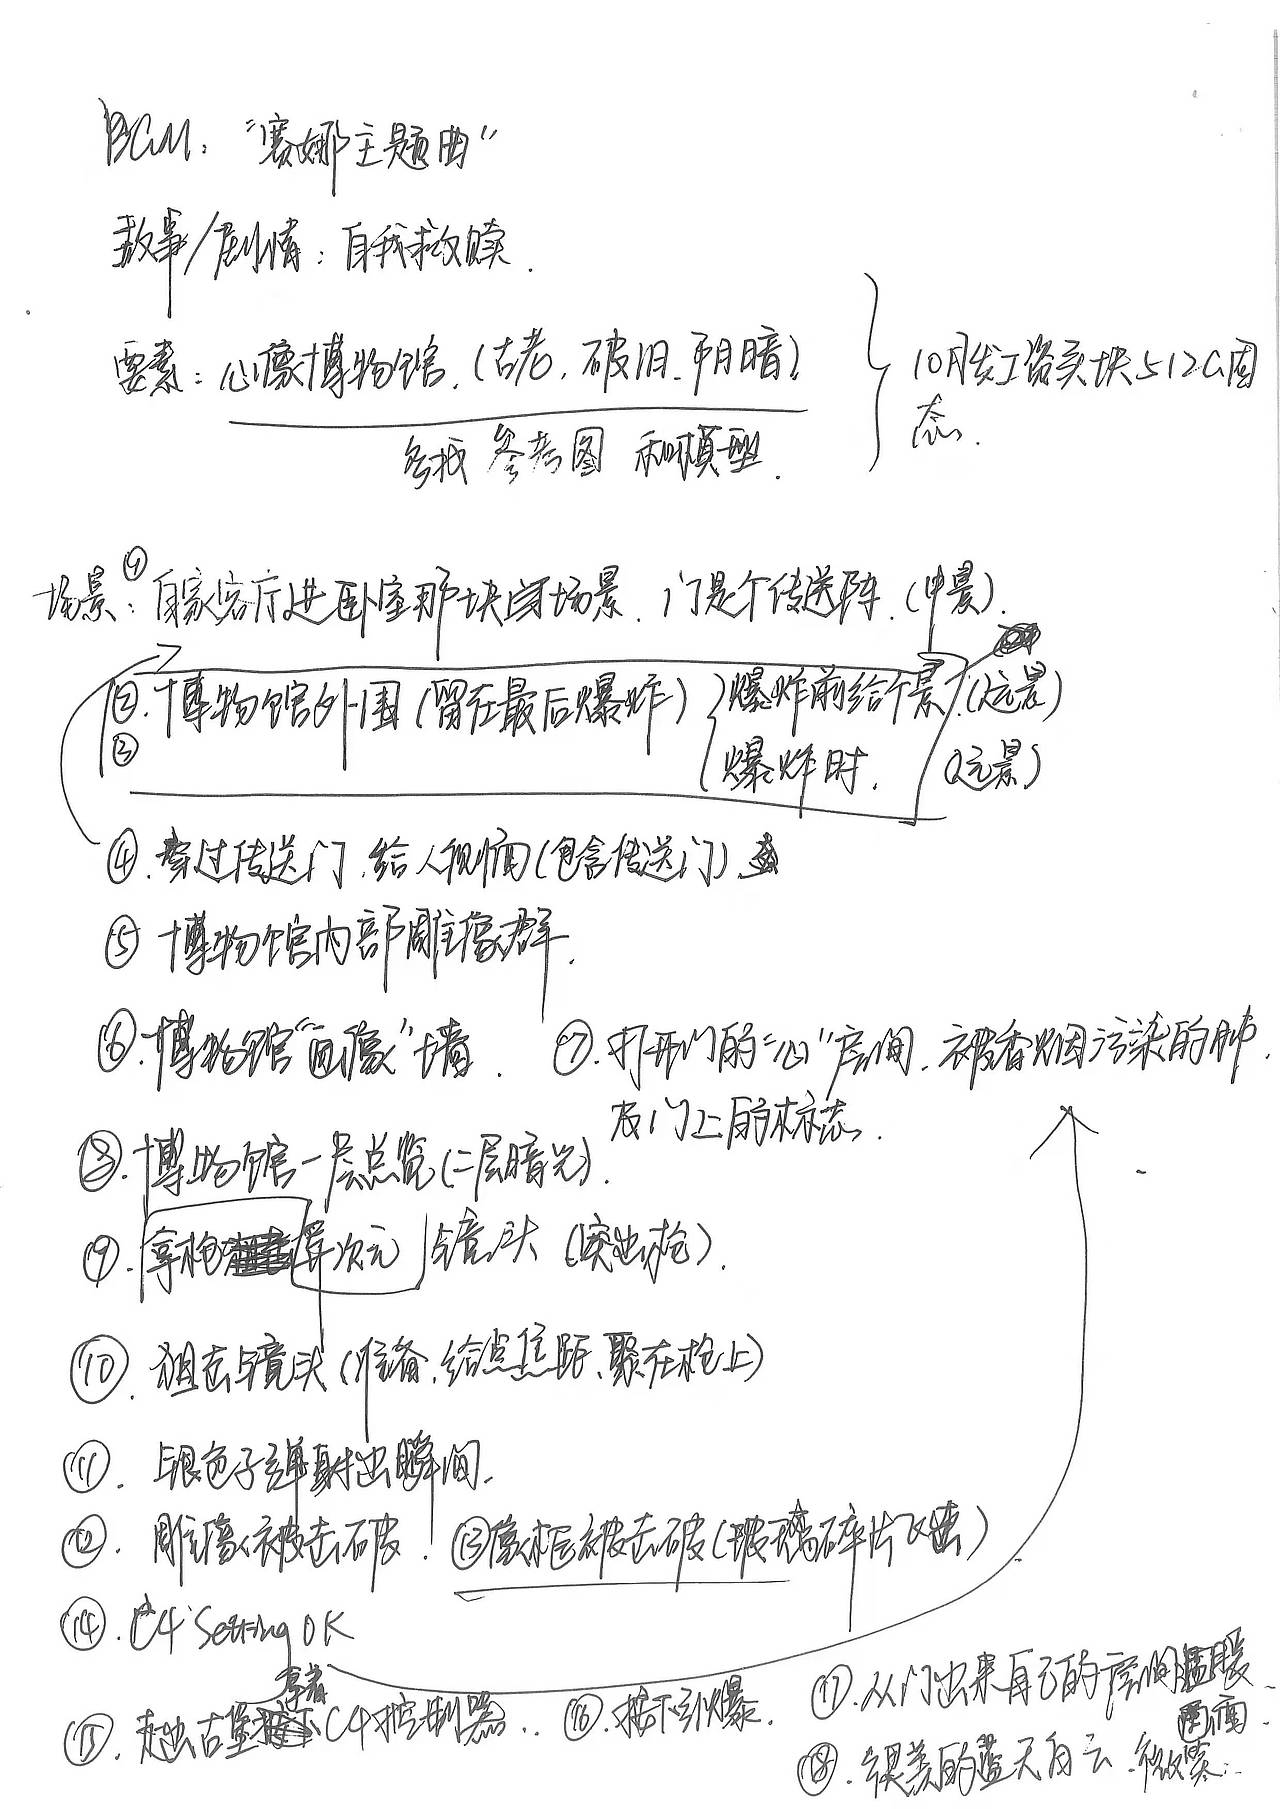 BGM："赛娜主题曲"
故事/剧情：自我救赎.
要素：心像博物馆.（古老.破旧.阴暗）
多找 参考图 和模型.
10月发工资买块512G固
态.
场景：①自家客厅进卧室那块的场景.门是个传送阵.（中景）.
②.博物馆外围（留在最后爆炸）爆炸前给个景.（远景）
③ 爆炸时.（远景）
④.穿过传送门.给人视角（包含传送门）.
⑤ 博物馆内部雕像群.
⑥.博物馆"画像"墙.
⑦.打开门的"心"房间.被香烟污染的肺.
及门上的标志.
⑧.博物馆一层点览（二层暗光）.
⑨.拿枪 异次元 镜头（突出枪）.
⑩.狙击镜头（准备.给点焦距、聚在枪上）
⑪.银色子弹射出瞬间.
⑫.雕像被击破.
⑬像框被击破（玻璃碎片飞出）
⑭.C4 Setting OK
⑮.走出古堡拿着C4控制器..
⑯.按下引爆.
⑰.从门出来自己的房间温暖
画面.
⑱.很美的蓝天白云.微笑..